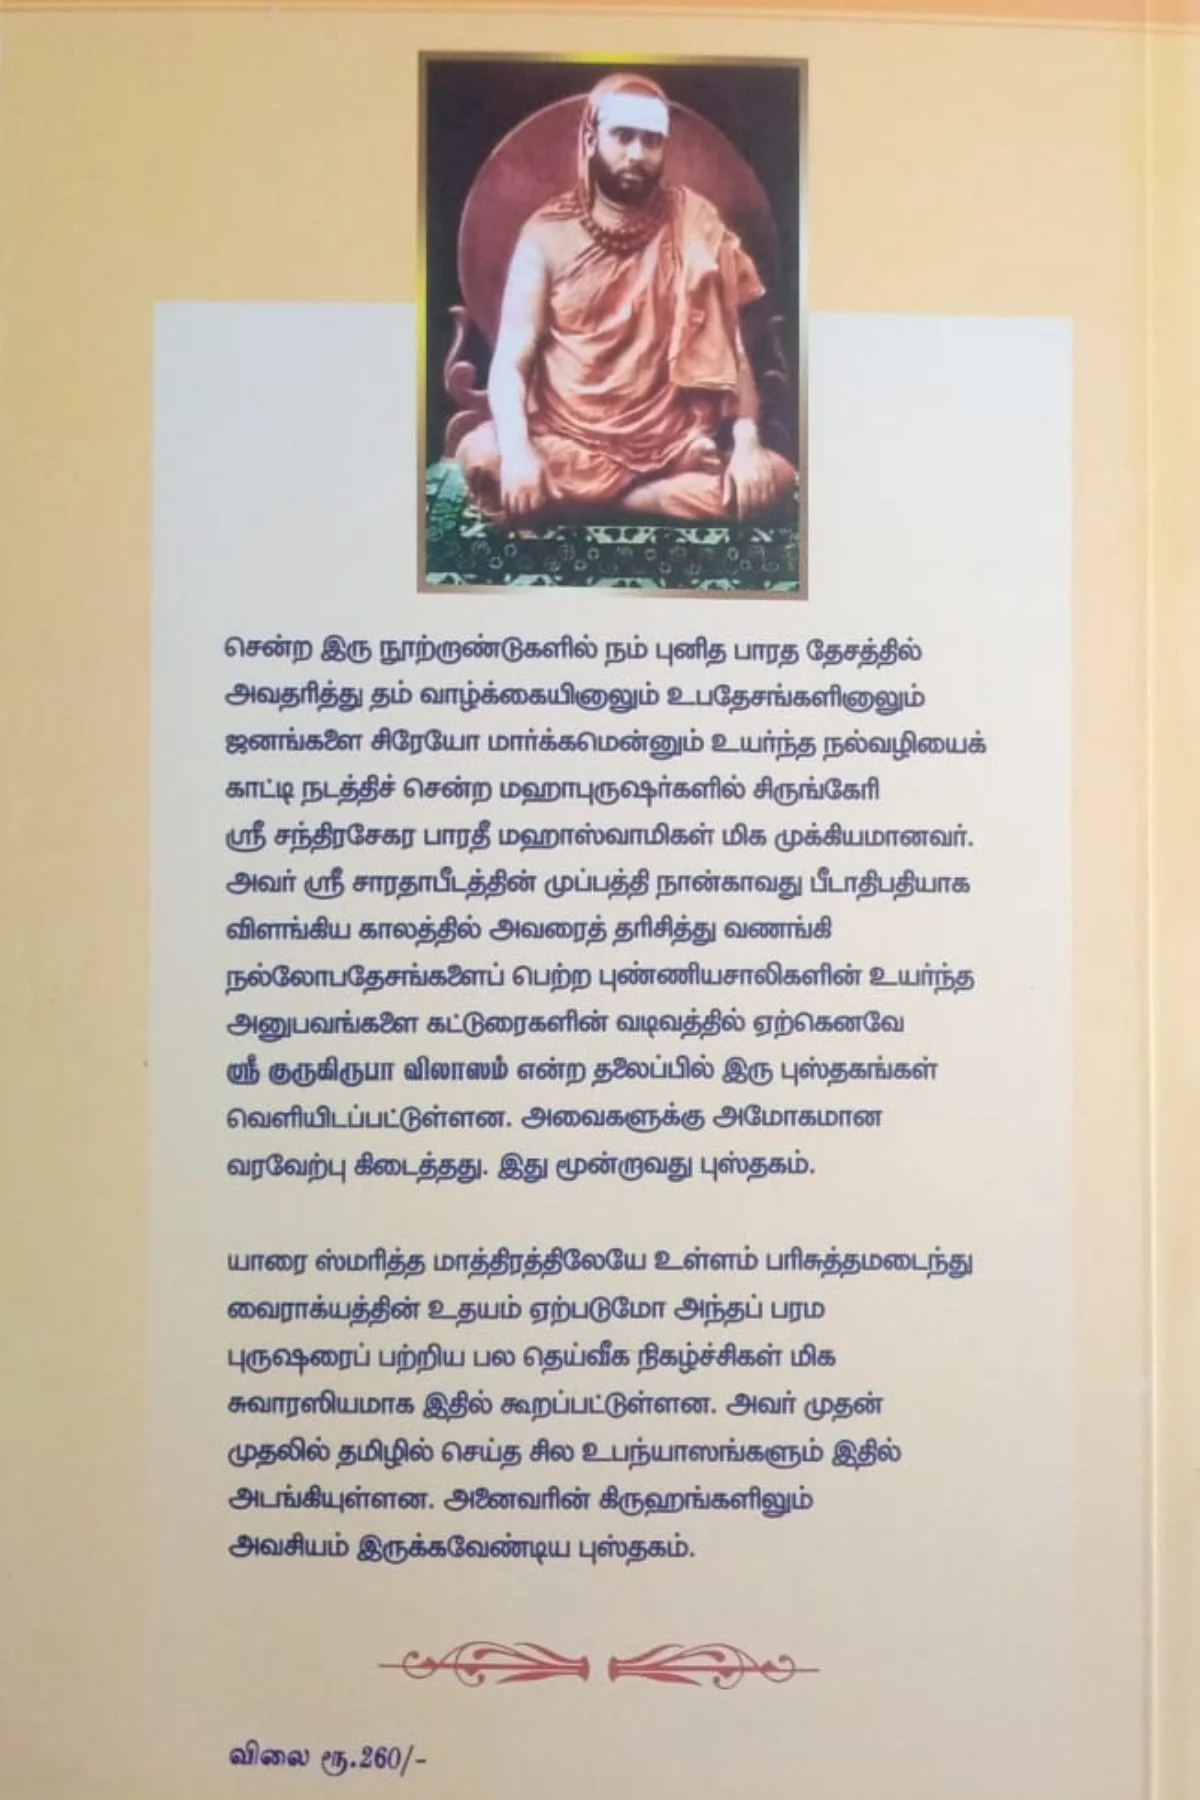 சென்ற இரு நூற்றாண்டுகளில் நம் புனித பாரத தேசத்தில்
அவதரித்து தம் வாழ்க்கையினாலும் உபதேசங்களினாலும்
ஜனங்களை சிரேயோ மார்க்கமென்னும் உயர்ந்த நல்வழியைக்
காட்டி நடத்திச் சென்ற மஹாபுருஷர்களில் சிருங்கேரி
ஸ்ரீ சந்திரசேகர பாரதீ மஹாஸ்வாமிகள் மிக முக்கியமானவர்.
அவர் ஸ்ரீ சாரதாபீடத்தின் முப்பத்தி நான்காவது பீடாதிபதியாக
விளங்கிய காலத்தில் அவரைத் தரிசித்து வணங்கி
நல்லோபதேசங்களைப் பெற்ற புண்ணியசாலிகளின் உயர்ந்த
அனுபவங்களை கட்டுரைகளின் வடிவத்தில் ஏற்கெனவே
ஸ்ரீ குருகிருபா விலாஸம் என்ற தலைப்பில் இரு புஸ்தகங்கள்
வெளியிடப்பட்டுள்ளன. அவைகளுக்கு அமோகமான
வரவேற்பு கிடைத்தது. இது மூன்றாவது புஸ்தகம்.
யாரை ஸ்மரித்த மாத்திரத்திலேயே உள்ளம் பரிசுத்தமடைந்து
வைராக்யத்தின் உதயம் ஏற்படுமோ அந்தப் பரம
புருஷரைப் பற்றிய பல தெய்வீக நிகழ்ச்சிகள் மிக
சுவாரஸியமாக இதில் கூறப்பட்டுள்ளன. அவர் முதன்
முதலில் தமிழில் செய்த சில உபந்யாஸங்களும் இதில்
அடங்கியுள்ளன. அனைவரின் கிருஹங்களிலும்
அவசியம் இருக்கவேண்டிய புஸ்தகம்.
விலை ரூ.260/-